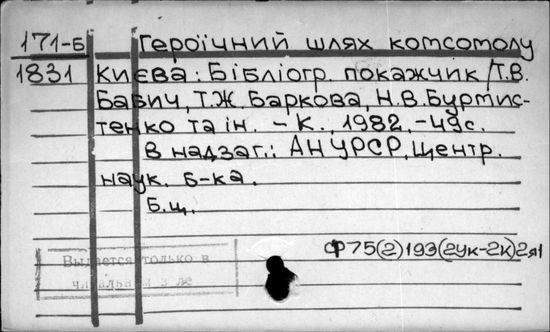 171-Б Героїчний шлях комсомолу
1831 Києва: Бібліогр. покажчик /Т.В.
Бабич, Т.Ж. Баркова, Н.В. Бурмис-
тенко та ін. – К., 1982. – 49с.
В надзаг.: АН УРСР, Центр.
наук. б-ка.
Б.ц.
Ф75(2)193(2Ук-2К)2я1
Выдается только в
читальном зале